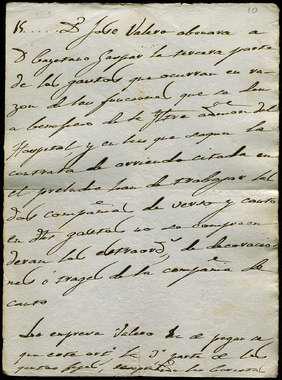 10
15.... D. José Valero abonara a
D. Cayetano Gaspar la tercera parte
de los gastos que ocurran en ra-
zon de las funciones que se den
a beneficio de la Iltre admon del
Hospital y en las que segun la
contrata de arriendo citada en
el preludio han de trabajar las
dos compañias de verso y canto
en dhos gastos no se compren-
deran los estraords de decoracio-
nes ó trages de la compañia de
canto
La empresa Valero ha de pagar se-
que este art. la 3ª parte de los
gastos fijos,